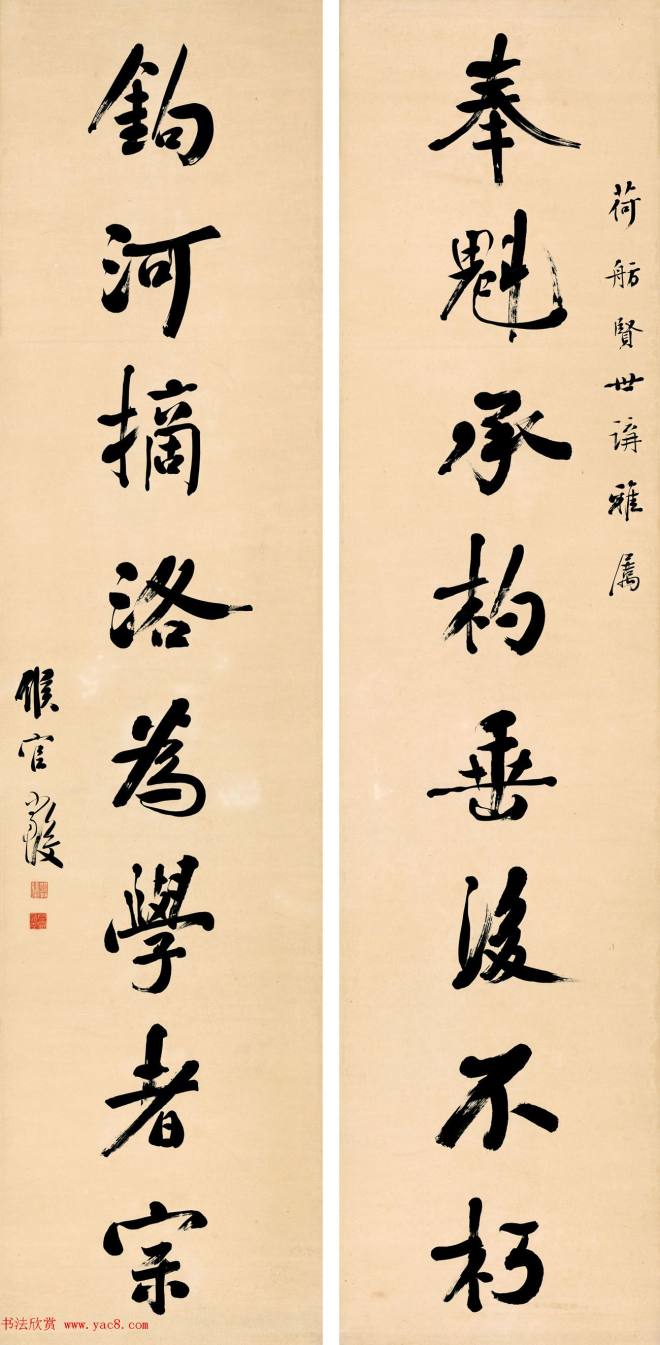 荷舫賢世講雅屬
奉魁承杓垂後不朽
鉤河摘洛為學者宗
侯官
书法欣赏 www.yac8.com